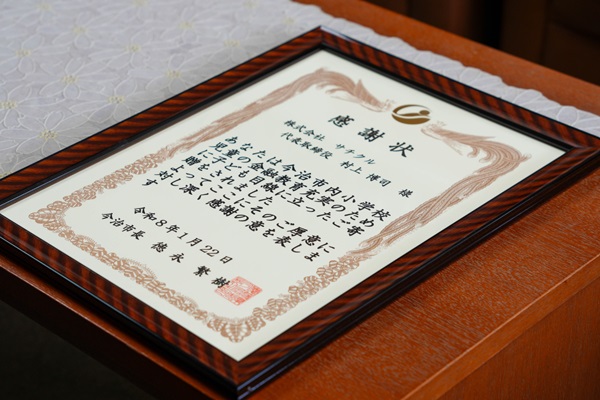 感謝状
株式会社 サチクル
代表取締役 村上 博司 様
あなたは今治市内小学校
児童の金融教育充実のため
に子ども目線に立ったご寄
贈をされましたそのご厚意に
対し深く感謝の意を表しま
す
令和8年1月22日
今治市長 徳永 繁樹